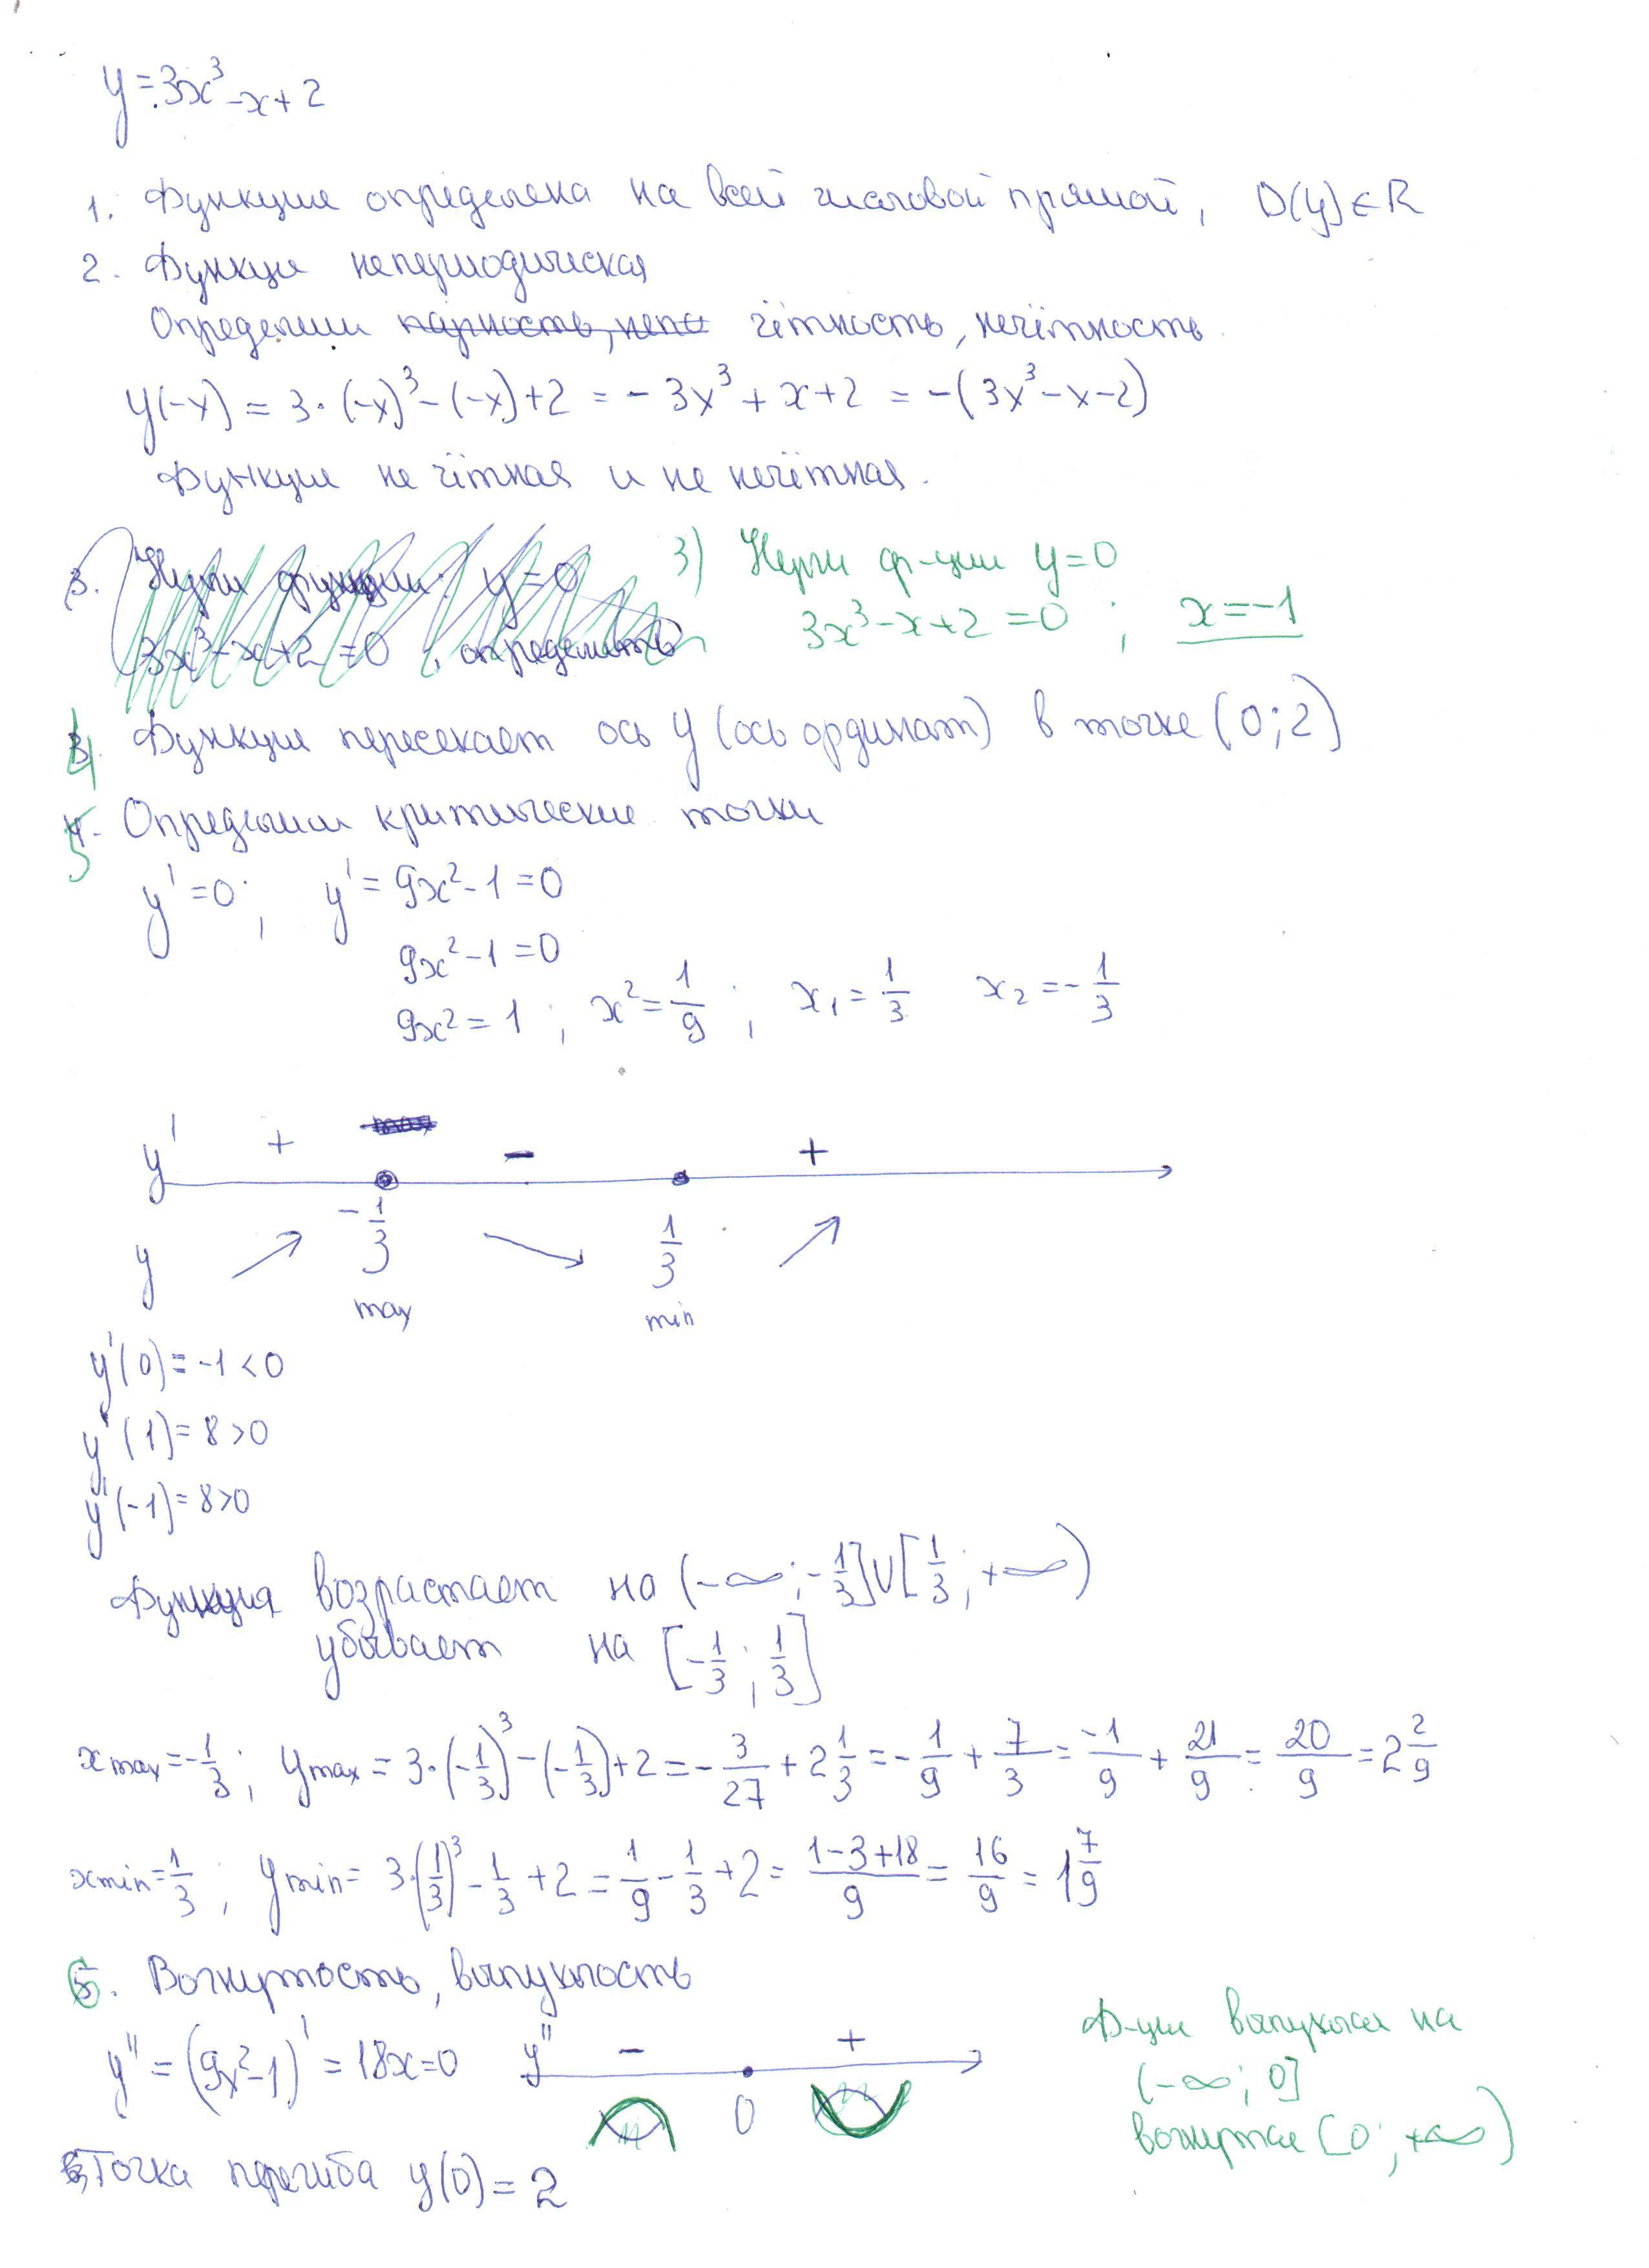 y = 3x³ - x + 2
1. Функция определена на всей числовой прямой, D(y) ∈ R
2. Функция непериодическая
Определим чётность, нечётность
y(-x) = 3·(-x)³ - (-x) + 2 = -3x³ + x + 2 = -(3x³ - x - 2)
Функция не чётная и не нечётная.
3. Нули функции: y = 0
3x³ - x + 2 = 0 ; определить
3) Нули ф-ции y = 0
3x³ - x + 2 = 0 ; x = -1
4. Функция пересекает ось y (ось ординат) в точке (0; 2)
5. Определим критические точки
y' = 0 ; y' = 9x² - 1 = 0
9x² - 1 = 0
9x² = 1 ; x² = 1/9 ; x₁ = 1/3 x₂ = -1/3
y' + - +
-1/3 1/3
y ↗ ↘ ↗
max min
y'(0) = -1 < 0
y'(1) = 8 > 0
y'(-1) = 8 > 0
Функция возрастает на (-∞; -1/3] ∪ [1/3; +∞)
убывает на [-1/3; 1/3]
x max = -1/3 ; y max = 3·(-1/3)³ - (-1/3) + 2 = -3/27 + 2 1/3 = -1/9 + 7/3 = -1/9 + 21/9 = 20/9 = 2 2/9
x min = 1/3 ; y min = 3·(1/3)³ - 1/3 + 2 = 1/9 - 1/3 + 2 = (1-3+18)/9 = 16/9 = 1 7/9
6. Вогнутость, выпуклость
y'' = (9x² - 1)' = 18x = 0 y'' - + 0
Ф-ция выпуклая на
(-∞; 0]
вогнутая [0; +∞)
Точка перегиба y(0) = 2